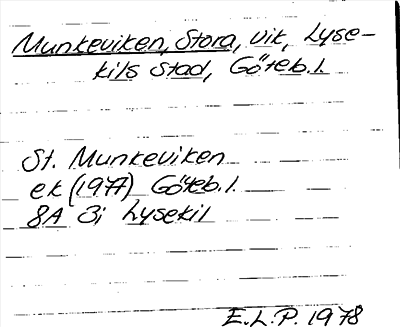 Munkeviken, Stora, vik, Lyse-
kils stad, Göteb. l.
St. Munkeviken
ek (1977) Göteb. l.
8A 3i Lysekil
E.L.P. 1978